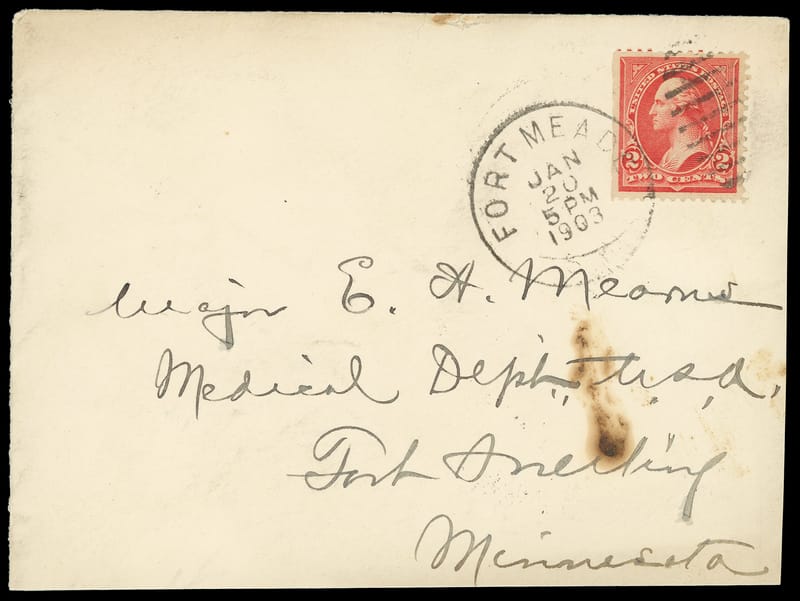 UNITED STATES POSTAGE
2 2
TWO CENTS
FORT MEADE
JAN
20
5 PM
1903
Major E. A. Mearns
Medical Dept., U.S.A.,
Fort Snelling
Minnesota